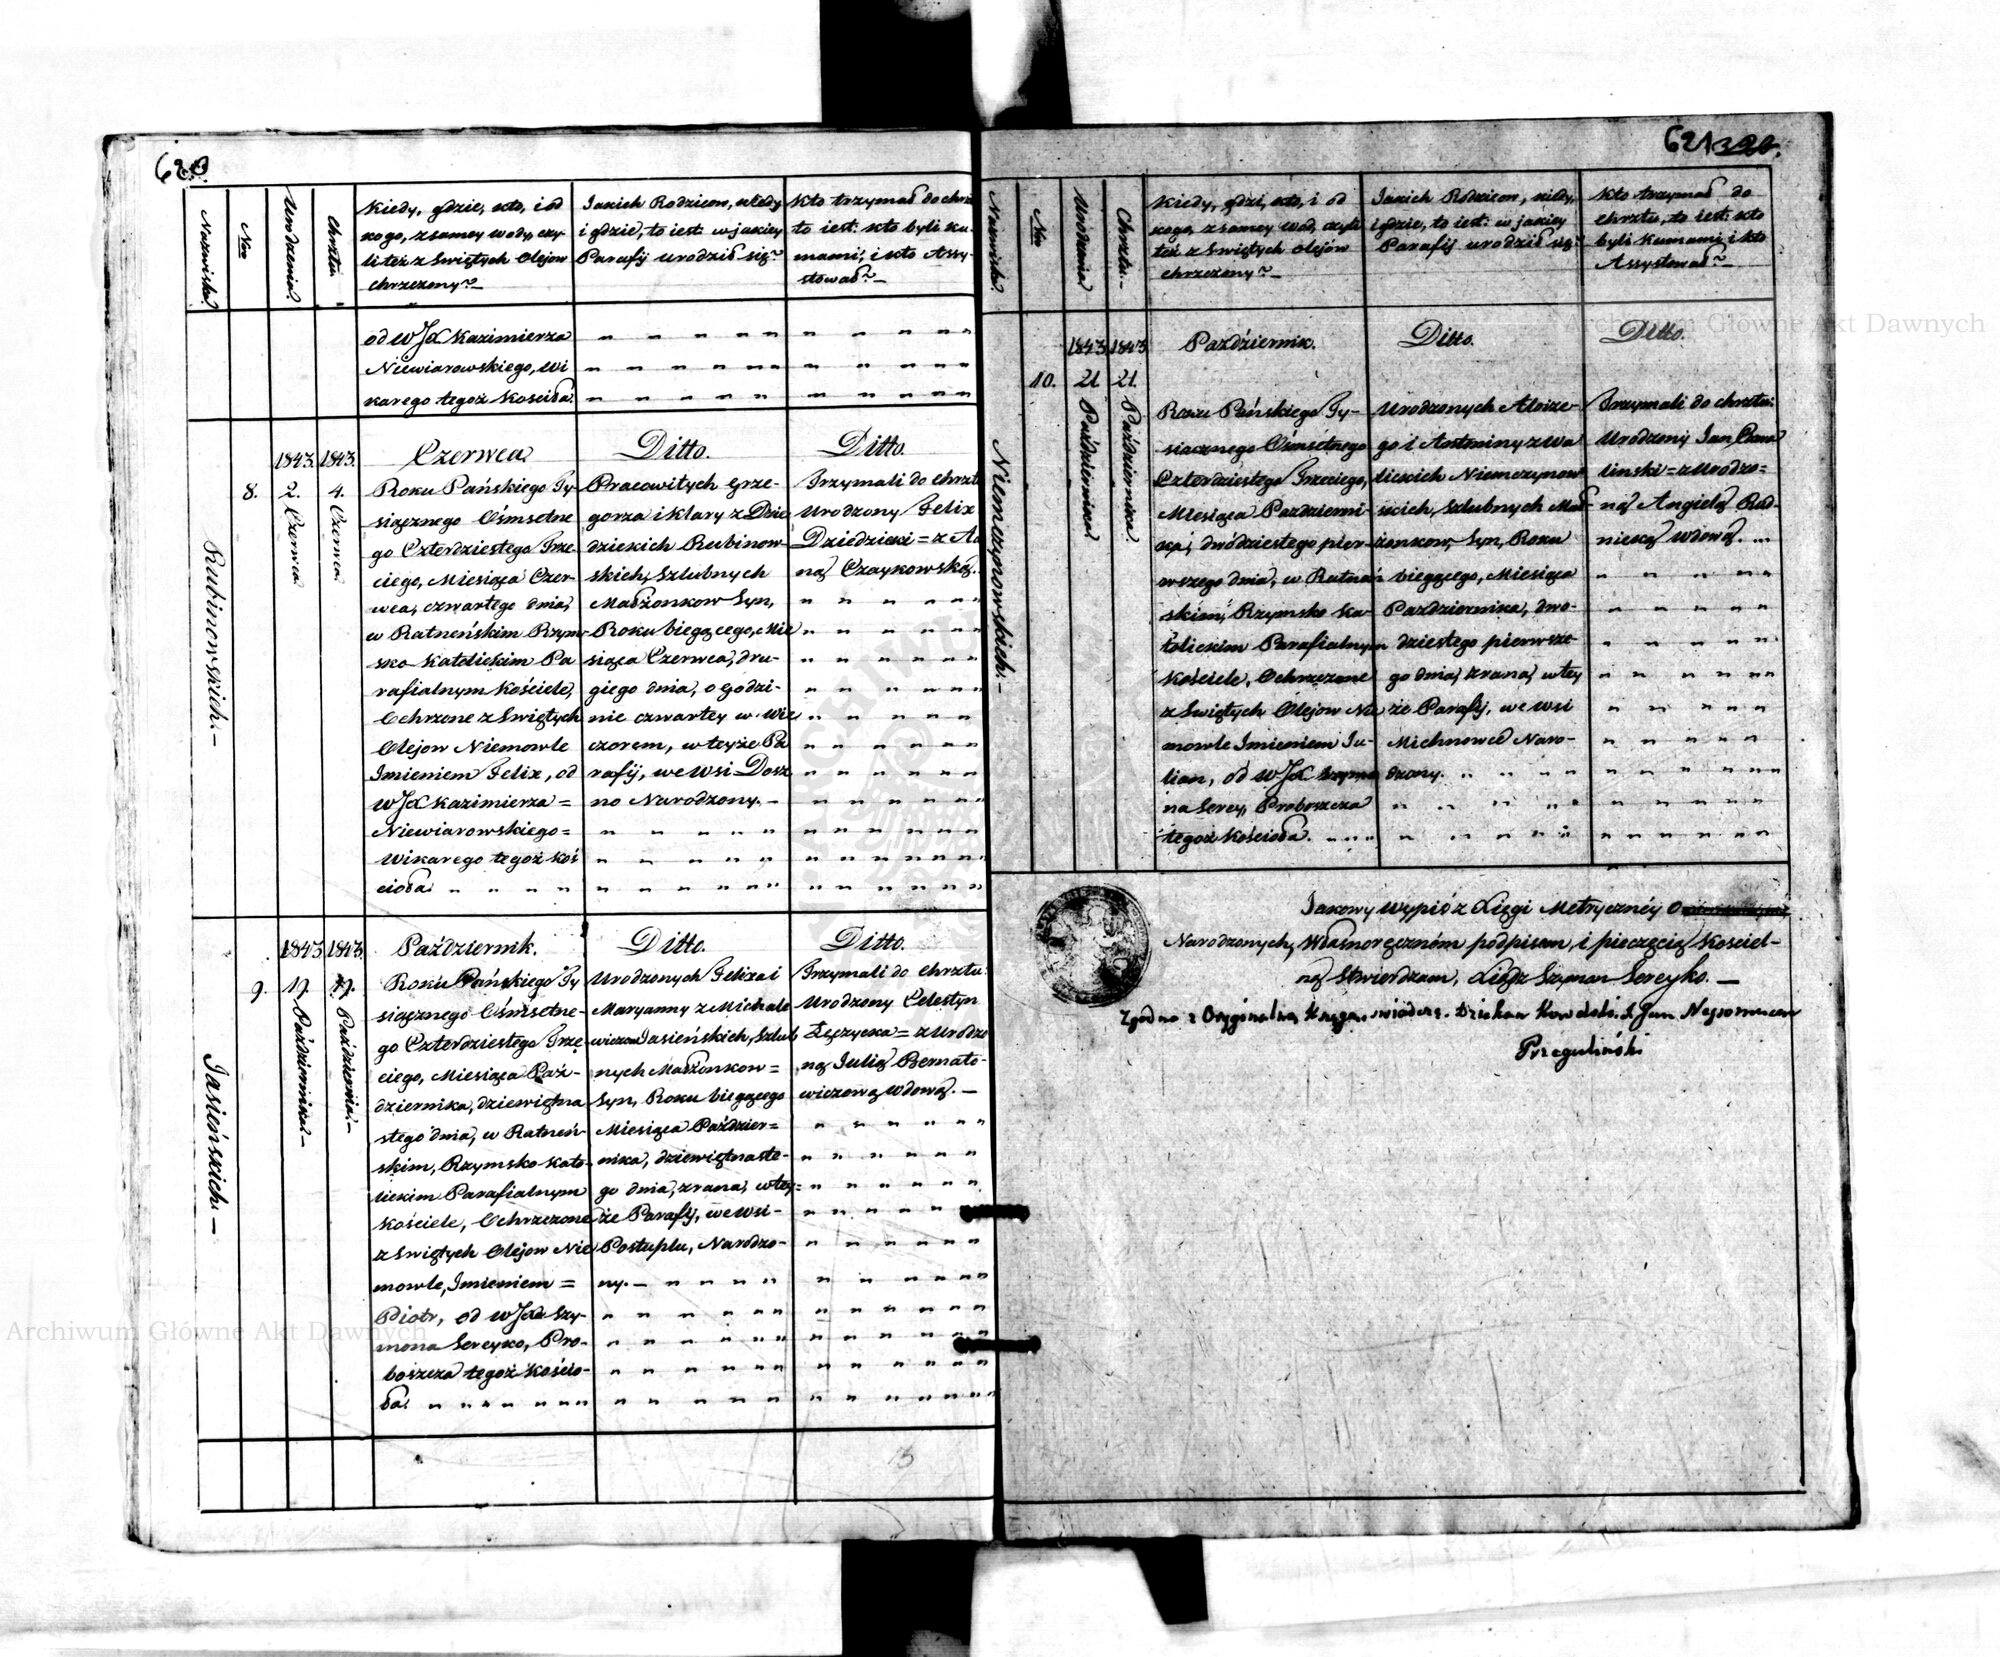 620.
Nazwiska.
Nro
Urodzenia.
Chrztu
Kiedy, gdzie, kto, i od
kogo, z samey wody, czy
li też z Swiętych Olejow
chrzczony?
Jakich Rodzicow, kiedy
i gdzie, to iest: w jakiey
Parafij urodził się?
Kto trzymał do chrz
to iest: kto byli ku-
mami, i kto Assy-
stował?
od WJX Kazimierza
Niewiarowskiego, Wi
karego tegoż Kościoła.
Rubinowskich.
8.
1843.
2. Czerwca
1843.
4. Czerwca.
Czerwca.
Roku Pańskiego Ty-
siącznego Ośmsetne
go Czterdziestego Trze-
ciego, Miesiąca Czer-
wca, czwartego dnia,
w Ratneńskim Rzym-
sko Katolickim Pa
rafialnym Kościele,
Ochrzczone z Swiętych
Olejow Niemowle
Imieniem Felix, od
WJX Kazimierza =
Niewiarowskiego =
Wikarego tegoż Koś
cioła.
Ditto.
Pracowitych Grze-
gorza i Klary z Dzie
dzickich Rubinow-
skich, Szlubnych
Małżonkow Syn,
Roku biegącego, Mie
siąca Czerwca, dru-
giego dnia, o godzi-
nie czwartey w Wie
czorem, w teyże Pa
rafij, we Wsi Dosz
no Narodzony.
Ditto.
Trzymali do chrztu
Urodzony Felix
Dziedzicki = z A
ną Czaykowską.
Jasieńskich.
9.
1843
19. Października
1843.
19. Października.
Październik.
Roku Pańskiego Ty
siącznego Ośmsetne-
go Czterdziestego Trze-
ciego, Miesiąca Paź-
dziernika, dziewiętna
stego dnia, w Ratneń-
skim, Rzymsko kato-
lickim Parafialnym
Kościele, Ochrzczone
z Swiętych Olejow Nie
mowle, Imieniem =
Piotr, od WJXa Szy-
mona Sereyko, Pro-
boszcza tegoż Kościo-
ła.
Ditto.
Urodzonych Felixa i
Maryanny z Michale
wiczow Jasieńskich, Szlub
nych Małżonkow =
Syn, Roku biegącego
Miesiąca Paździer =
nika, dziewiętnaste-
go dnia, z rana, w tey =
że Parafij, we Wsi -
Postuplu, Narodzo-
ny.
Ditto.
Trzymali do chrztu:
Urodzony Celestyn
Łęczycka = z Urodzo
ną Julią Bernato-
wiczową Wdową.
621
Nazwiska.
Nro
Urodzenia
Chrztu.
Kiedy, gdzi, kto, i od
kogo, z samey wod, czyli
też z Swiętych Olejow
chrzczony?
Jakich Rodzicow, kiedy,
i gdzie, to iest: w jakiey
Parafij urodził się?
Kto trzymał do
chrztu, to iest: kto
byli Kumami, i kto
Assystował?
Niemczynowskich.
10.
1843
21 Października
1843
21. Października.
Październik.
Roku Pańskiego Ty-
siącznego Ośmsetnego
Czterdziestego Trzeciego,
Miesiąca Październi-
ka, dwódziestego pier-
wszego dnia, w Ratneń
skim, Rzymsko Ka-
tolickim Parafialnym
Kościele, Ochrzczone
z Swiętych Olejow Nie
mowle Imieniem Ju-
lian, od WJX Szymo
na Serey, Proboszcza
tegoż Kościoła.
Ditto.
Urodzonych Aloize-
go i Antoniny z Wa
lickich Niemczynow
skich, Szlubnych Mał
żonkow, Syn, Roku
biegącego, Miesiąca
Października, dwo-
dziestego pierwsze-
go dnia, z rana, w tey
że Parafij, we Wsi
Michnowce Naro-
dzony.
Ditto.
Trzymali do chrztu:
Urodzony Jan
linski = z Urodzo =
ną Angielą Rud-
nicką Wdową.
Jakowy wypis z Xięgi Metryczney O
Narodzonych, Własnoręcznóm podpisem, i pieczęcią Kościel-
ną Stwierdzam, Xiądz Szymon Sereyko.
Zgodno z Oryginalną Księgą swiadczę. Dziekan Kowelski X. Jan Nepomucen
Przeguliński
Archiwum Główne Akt Dawnych
Archiwum Główne Akt Dawnych